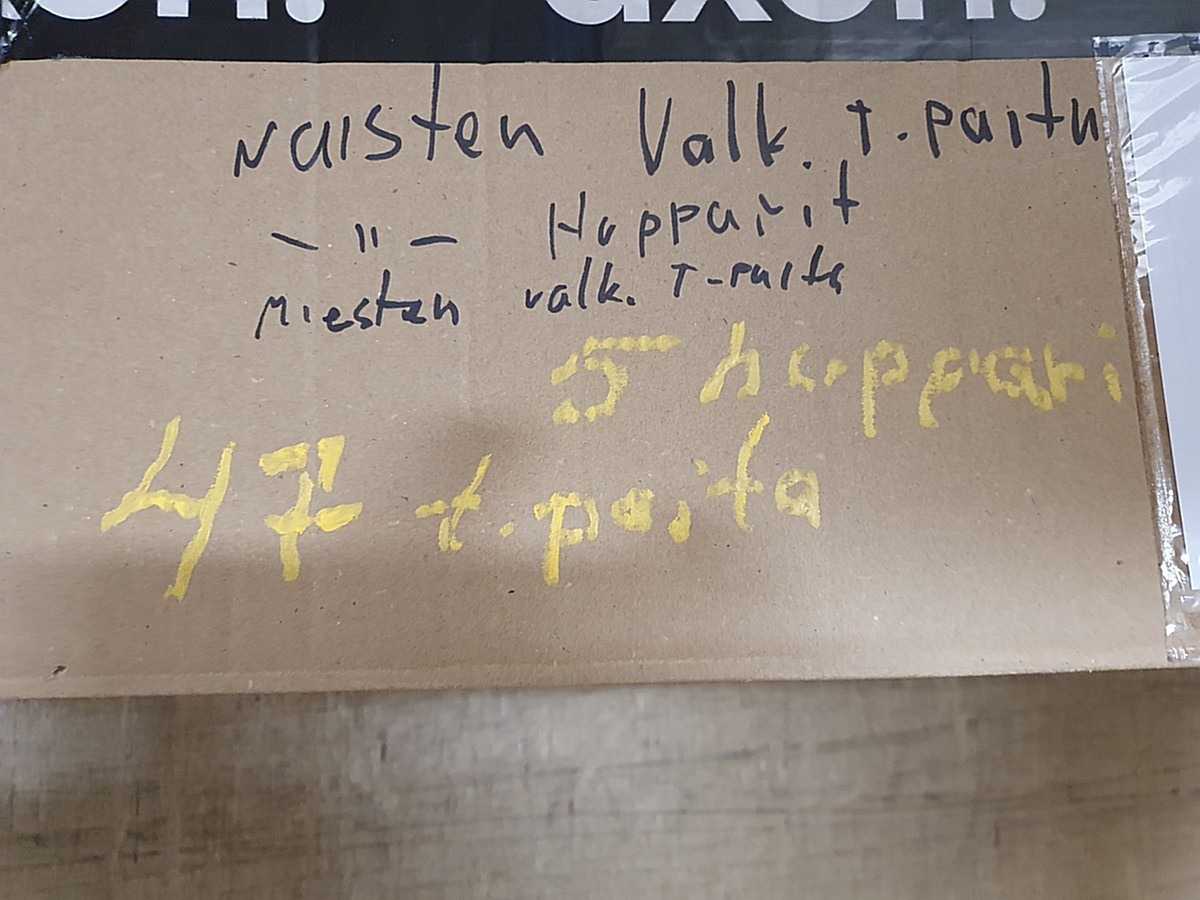 on. axon.
Naisten Valk. T.paita
— " — Hupparit
Miesten valk. T-paita
5 huppari
47 t.paita